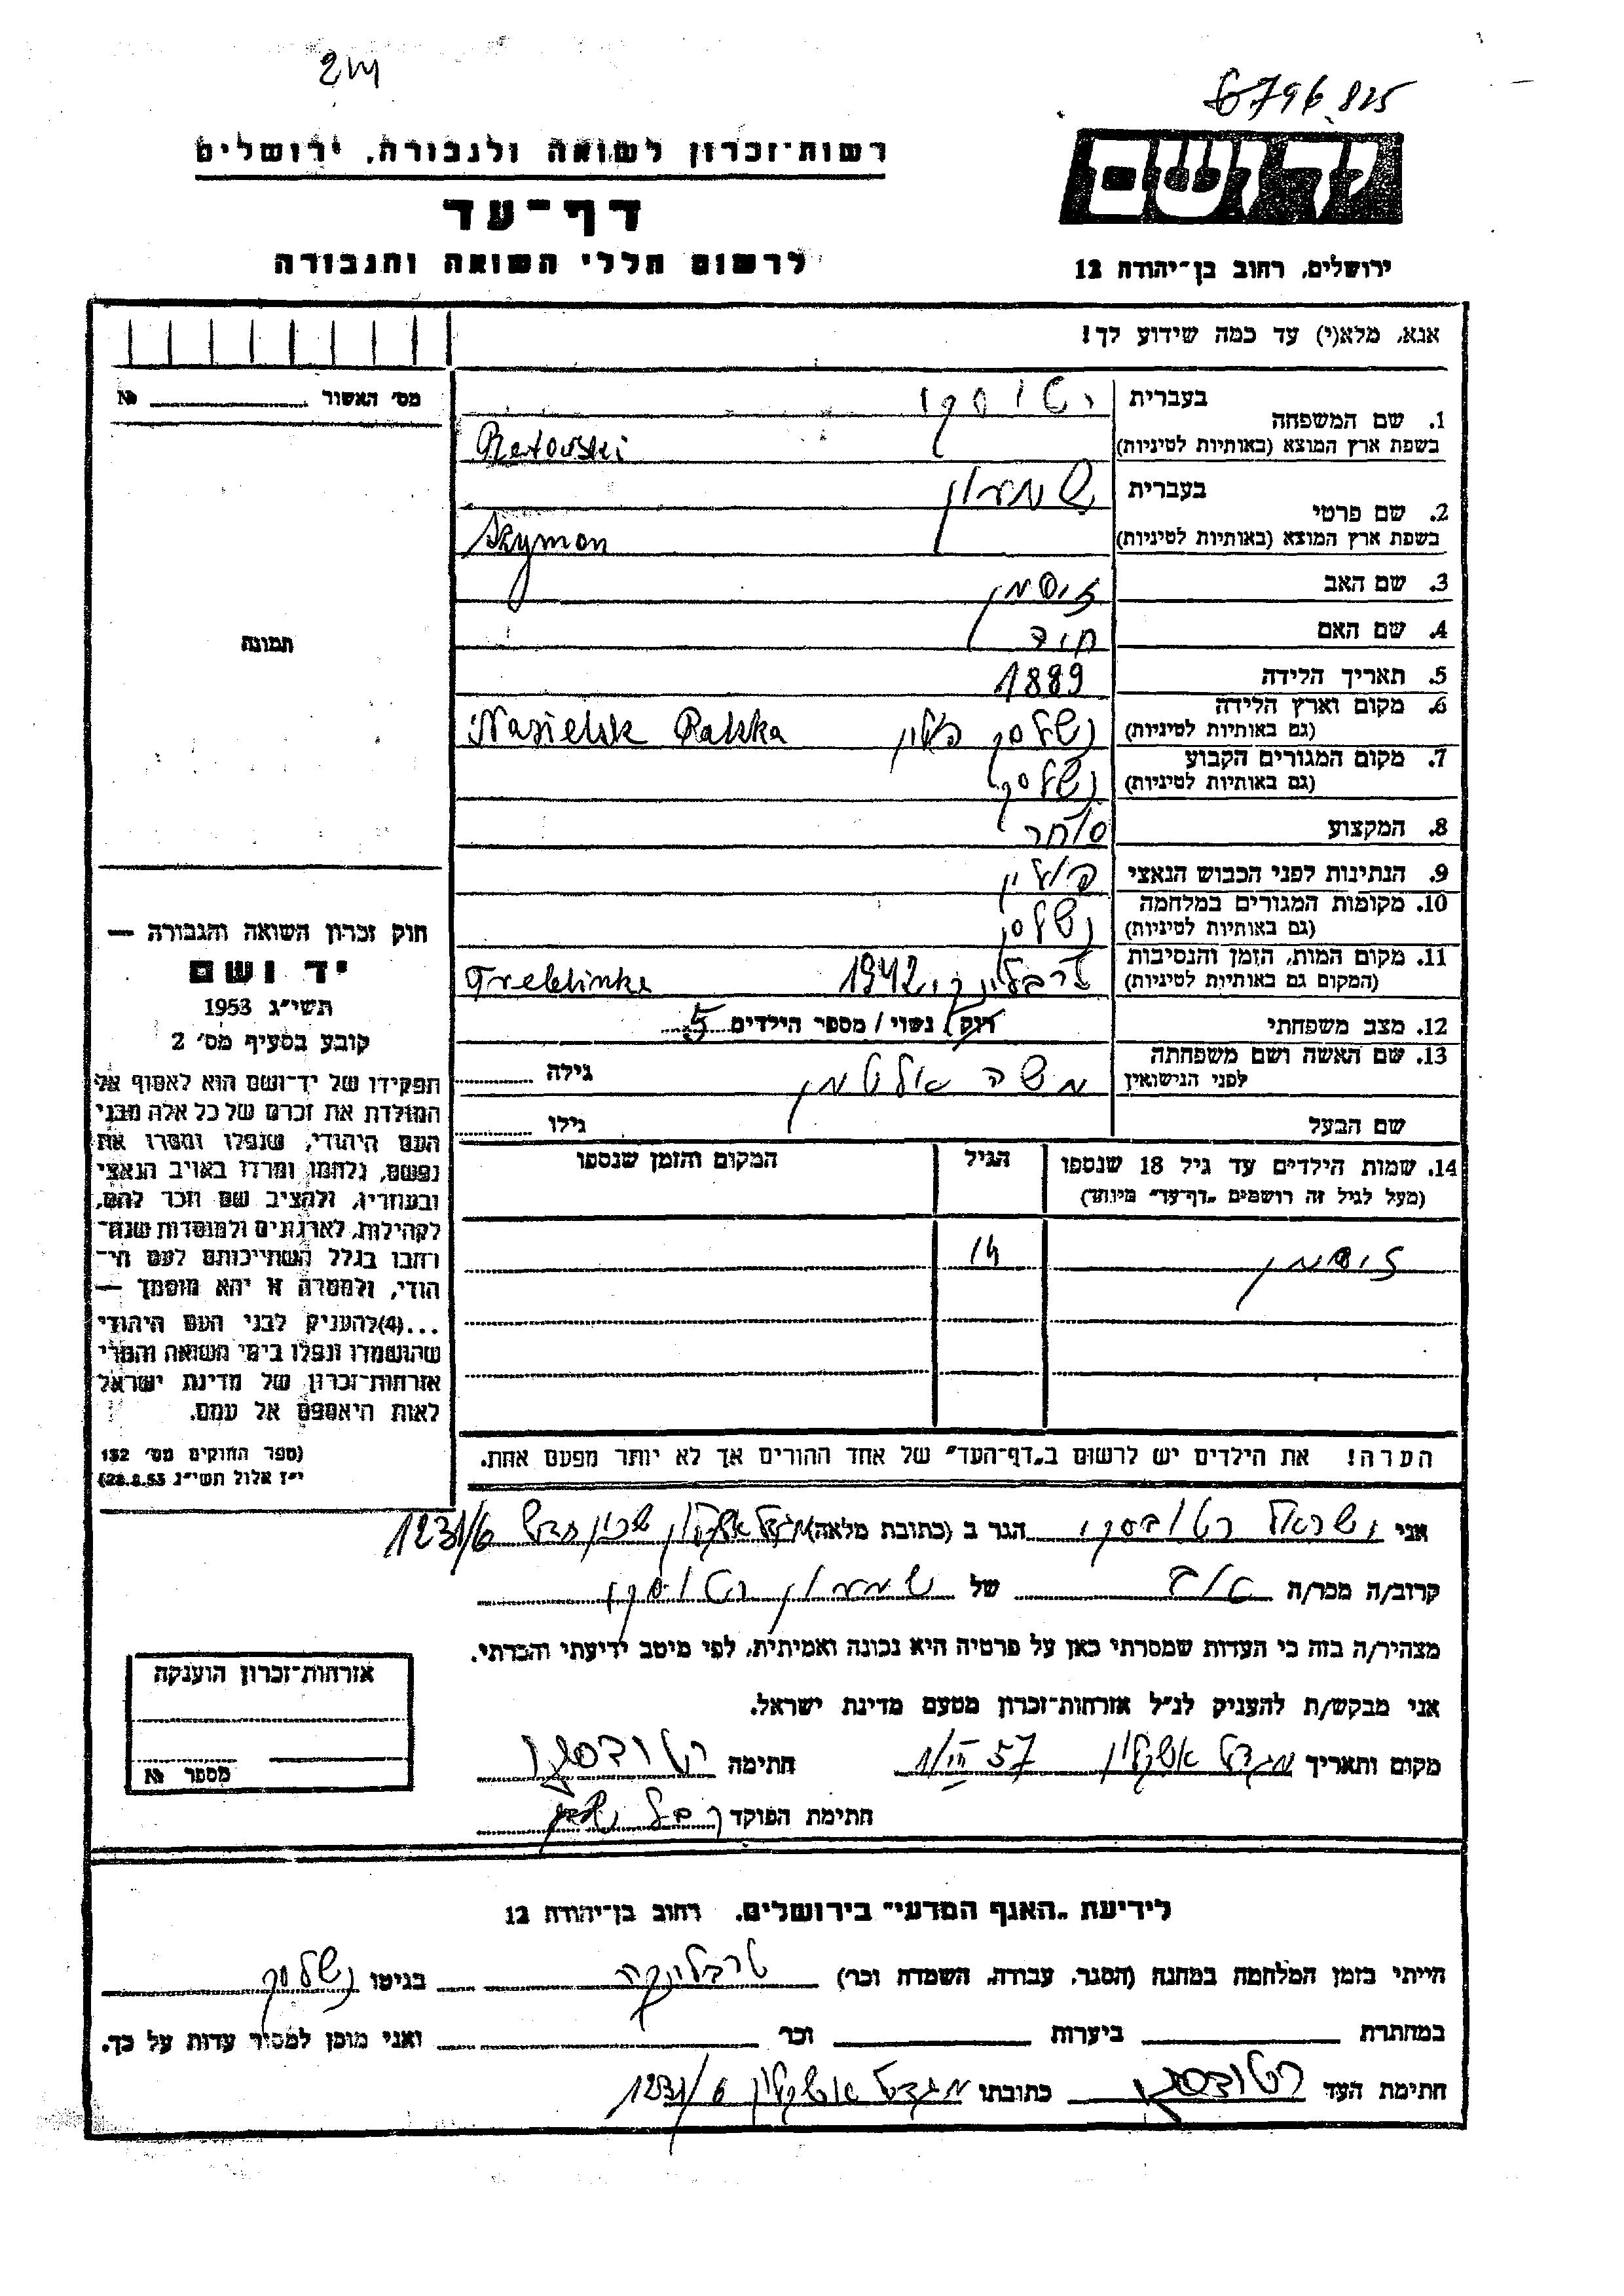 6796825
רשות־זכרון לשואה ולגבורה, ירושלים
יד ושם
דף־עד
לרשום חללי השואה והגבורה
ירושלים, רחוב בן־יהודה 12
אנא, מלא(י) עד כמה שידוע לך!
מס׳ האשור № 
1. שם המשפחה בעברית רטוסקי
בשפת ארץ המוצא (באותיות לטיניות)
2. שם פרטי בעברית שמעון
בשפת ארץ המוצא (באותיות לטיניות) Szymon
3. שם האב זיסמן
4. שם האם
תמונה
5. תאריך הלידה 1889
6. מקום וארץ הלידה נשלסק פולין Nasielsk Polska
(גם באותיות לטיניות)
7. מקום המגורים הקבוע נשלסק
(גם באותיות לטיניות)
8. המקצוע סוחר
9. הנתינות לפני הכבוש הנאצי פולין
10. מקומות המגורים במלחמה נשלסק
(גם באותיות לטיניות)
11. מקום המות, הזמן והנסיבות טרבלינקי 1942 Treblinka
(המקום גם באותיות לטיניות)
12. מצב משפחתי רוק / נשוי / מספר הילדים 5
13. שם האשה ושם משפחתה גילה
לפני הנישואין
שם הבעל גילו
חוק זכרון השואה והגבורה —
יד ושם
תשי״ג 1953
קובע בסעיף מס׳ 2
תפקידו של יד־ושם הוא לאסוף אל
המולדת את זכרם של כל אלה מבני
העם היהודי, שנפלו ומסרו את
נפשם, נלחמו ומרדו באויב הנאצי
ובעוזריו, ולהציב שם וזכר להם,
לקהילות, לארגונים ולמוסדות שנח־
רחבו בגלל השתייכותם לעם הי־
הודי, ולמטרה זו יהא מוסמך —
...(4)להעניק לבני העם היהודי
שהושמדו ונפלו בימי השואה והמרי
אזרחות־זכרון של מדינת ישראל
לאות היאספם אל עמם.
(ספר החוקים מס׳ 132
י״ז אלול תשי״ג 28.8.53)
14. שמות הילדים עד גיל 18 שנספו הגיל המקום והזמן שנספו
(מעל לגיל זה רושמים „דף־עד״ מיוחד)
זיסמן 14
הערה! את הילדים יש לרשום ב„דף־העד״ של אחד ההורים אך לא יותר מפעם אחת.
אני ישראל רטובסקי הגר ב (כתובת מלאה) מגדל אשקלון שכון מגדל 1231/6
קרוב/ה מכר/ה של שמעון רטוסקי
מצהיר/ה בזה כי העדות שמסרתי כאן על פרטיה היא נכונה ואמיתית, לפי מיטב ידיעתי והכרתי.
אני מבקש/ת להעניק לנ״ל אזרחות־זכרון מטעם מדינת ישראל.
מקום ותאריך מגדל אשקלון 1/III 57 חתימה
חתימת הפוקד
אזרחות־זכרון הוענקה
מספר №
לידיעת „האגף המדעי״ בירושלים, רחוב בן־יהודה 12
הייתי בזמן המלחמה במחנה (הסגר, עבודה, השמדה וכו׳) טרבלינקה בגיטו נשלסק
במחתרת ביערות וכו׳ ואני מוכן למסור עדות על כך.
חתימת העד כתובתו מגדל אשקלון 1231/6